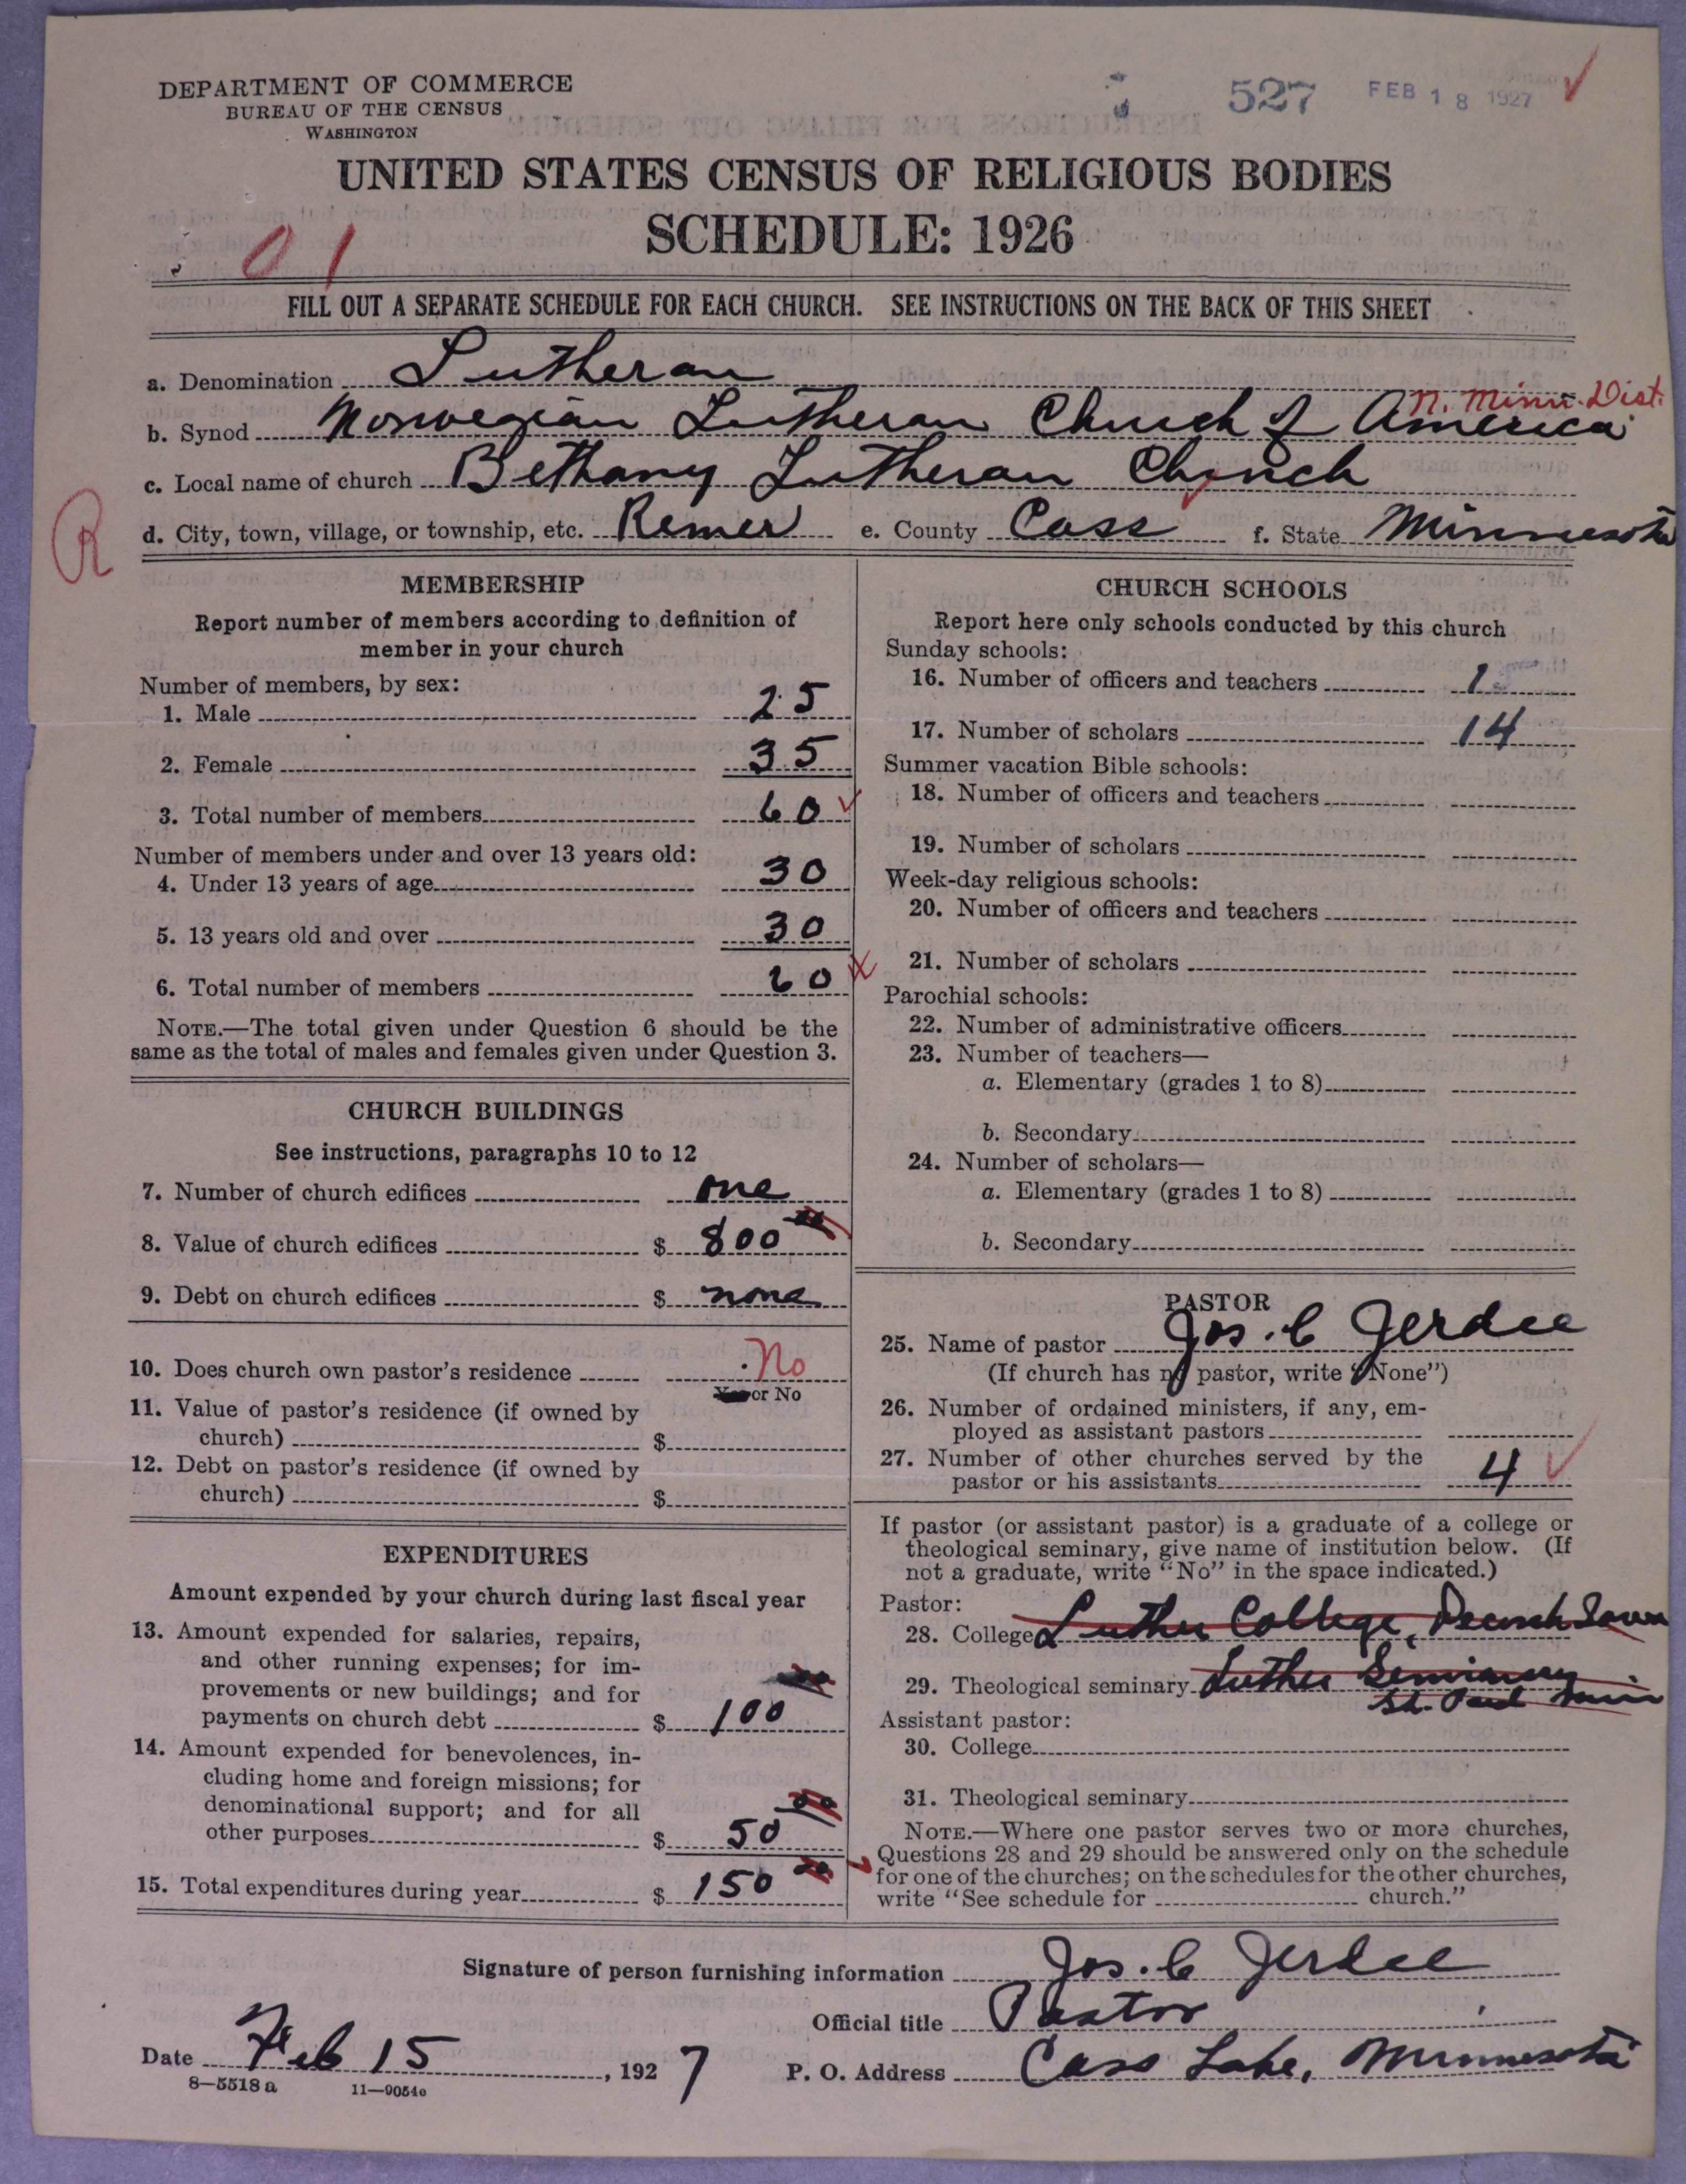 DEPARTMENT OF COMMERCE
BUREAU OF THE CENSUS
WASHINGTON
527
FEB 18 1927
UNITED STATES CENSUS OF RELIGIOUS BODIES
SCHEDULE: 1926
01
FILL OUT A SEPARATE SCHEDULE FOR EACH CHURCH. SEE INSTRUCTIONS ON THE BACK OF THIS SHEET
a. Denomination Lutheran
N. Minn. Dist.
b. Synod Norwegian Lutheran Church of America
c. Local name of church Bethany Lutheran Church
R
d. City, town, village, or township, etc. Remer e. County Cass f. State Minnesota
MEMBERSHIP
Report number of members according to definition of
member in your church
Number of members, by sex:
1. Male 25
2. Female 35
3. Total number of members 60
Number of members under and over 13 years old:
4. Under 13 years of age 30
5. 13 years old and over 30
6. Total number of members 60
NOTE.—The total given under Question 6 should be the
same as the total of males and females given under Question 3.
CHURCH BUILDINGS
See instructions, paragraphs 10 to 12
7. Number of church edifices one
8. Value of church edifices $ 800 00
9. Debt on church edifices $ none
10. Does church own pastor's residence No
Yes or No
11. Value of pastor's residence (if owned by
church) $
12. Debt on pastor's residence (if owned by
church) $
EXPENDITURES
Amount expended by your church during last fiscal year
13. Amount expended for salaries, repairs,
and other running expenses; for im-
provements or new buildings; and for
payments on church debt $ 100 00
14. Amount expended for benevolences, in-
cluding home and foreign missions; for
denominational support; and for all
other purposes $ 50 00
15. Total expenditures during year $ 150 00
CHURCH SCHOOLS
Report here only schools conducted by this church
Sunday schools:
16. Number of officers and teachers 1
17. Number of scholars 14
Summer vacation Bible schools:
18. Number of officers and teachers
19. Number of scholars
Week-day religious schools:
20. Number of officers and teachers
21. Number of scholars
Parochial schools:
22. Number of administrative officers
23. Number of teachers—
a. Elementary (grades 1 to 8)
b. Secondary
24. Number of scholars—
a. Elementary (grades 1 to 8)
b. Secondary
PASTOR
25. Name of pastor Jos. C Jerdee
(If church has no pastor, write "None")
26. Number of ordained ministers, if any, em-
ployed as assistant pastors
27. Number of other churches served by the
pastor or his assistants 4
If pastor (or assistant pastor) is a graduate of a college or
theological seminary, give name of institution below. (If
not a graduate, write "No" in the space indicated.)
Pastor:
28. College Luther College, Decorah Iowa
29. Theological seminary Luther Seminary
St. Paul Minn
Assistant pastor:
30. College
31. Theological seminary
NOTE.—Where one pastor serves two or more churches,
Questions 28 and 29 should be answered only on the schedule
for one of the churches; on the schedules for the other churches,
write "See schedule for church."
Signature of person furnishing information Jos. C Jerdee
Official title Pastor
Date Feb 15, 1927 P. O. Address Cass Lake, Minnesota
8—5518 a 11—9054c